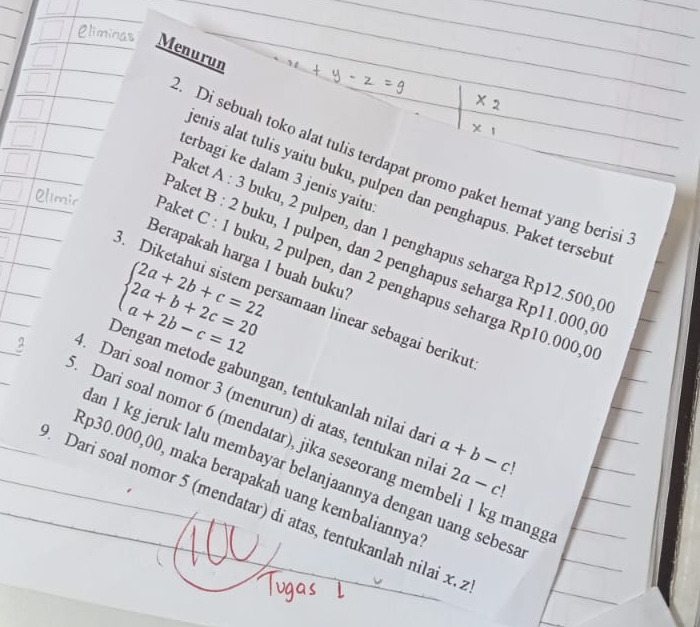 eliminas
+ y - z = 9
x 2
x 1
elimir
Menurun
2. Di sebuah toko alat tulis terdapat promo paket hemat yang berisi 3
jenis alat tulis yaitu buku, pulpen dan penghapus. Paket tersebut
terbagi ke dalam 3 jenis yaitu:
Paket A : 3 buku, 2 pulpen, dan 1 penghapus seharga Rp12.500,00
Paket B : 2 buku, 1 pulpen, dan 2 penghapus seharga Rp11.000,00
Paket C : 1 buku, 2 pulpen, dan 2 penghapus seharga Rp10.000,00
Berapakah harga 1 buah buku?
3. Diketahui sistem persamaan linear sebagai berikut:
2a + 2b + c = 22
2a + b + 2c = 20
a + 2b − c = 12
Dengan metode gabungan, tentukanlah nilai dari a + b − c!
4. Dari soal nomor 3 (menurun) di atas, tentukan nilai 2a − c!
5. Dari soal nomor 6 (mendatar), jika seseorang membeli 1 kg mangga
dan 1 kg jeruk lalu membayar belanjaannya dengan uang sebesar
Rp30.000,00, maka berapakah uang kembaliannya?
9. Dari soal nomor 5 (mendatar) di atas, tentukanlah nilai x.z!
100
Tugas 1